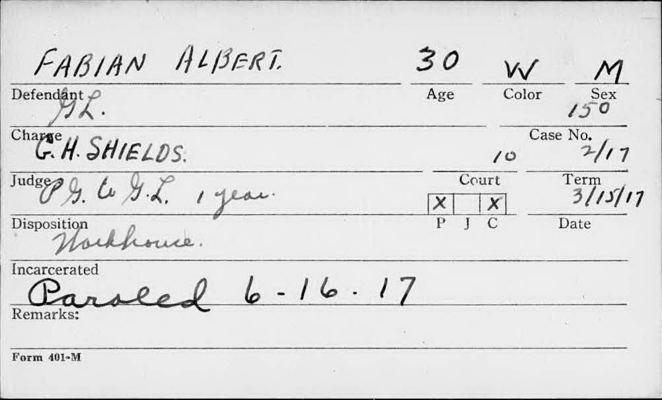 FABIAN ALBERT. 30 W M
Defendant Age Color Sex
G L. 150
Charge Case No.
G. H. SHIELDS. 10 2/17
Judge Court Term
P G. to G. L. 1 year. X X 3/15/17
Disposition P J C Date
Workhouse.
Incarcerated
Paroled 6-16-17
Remarks:
Form 401-M